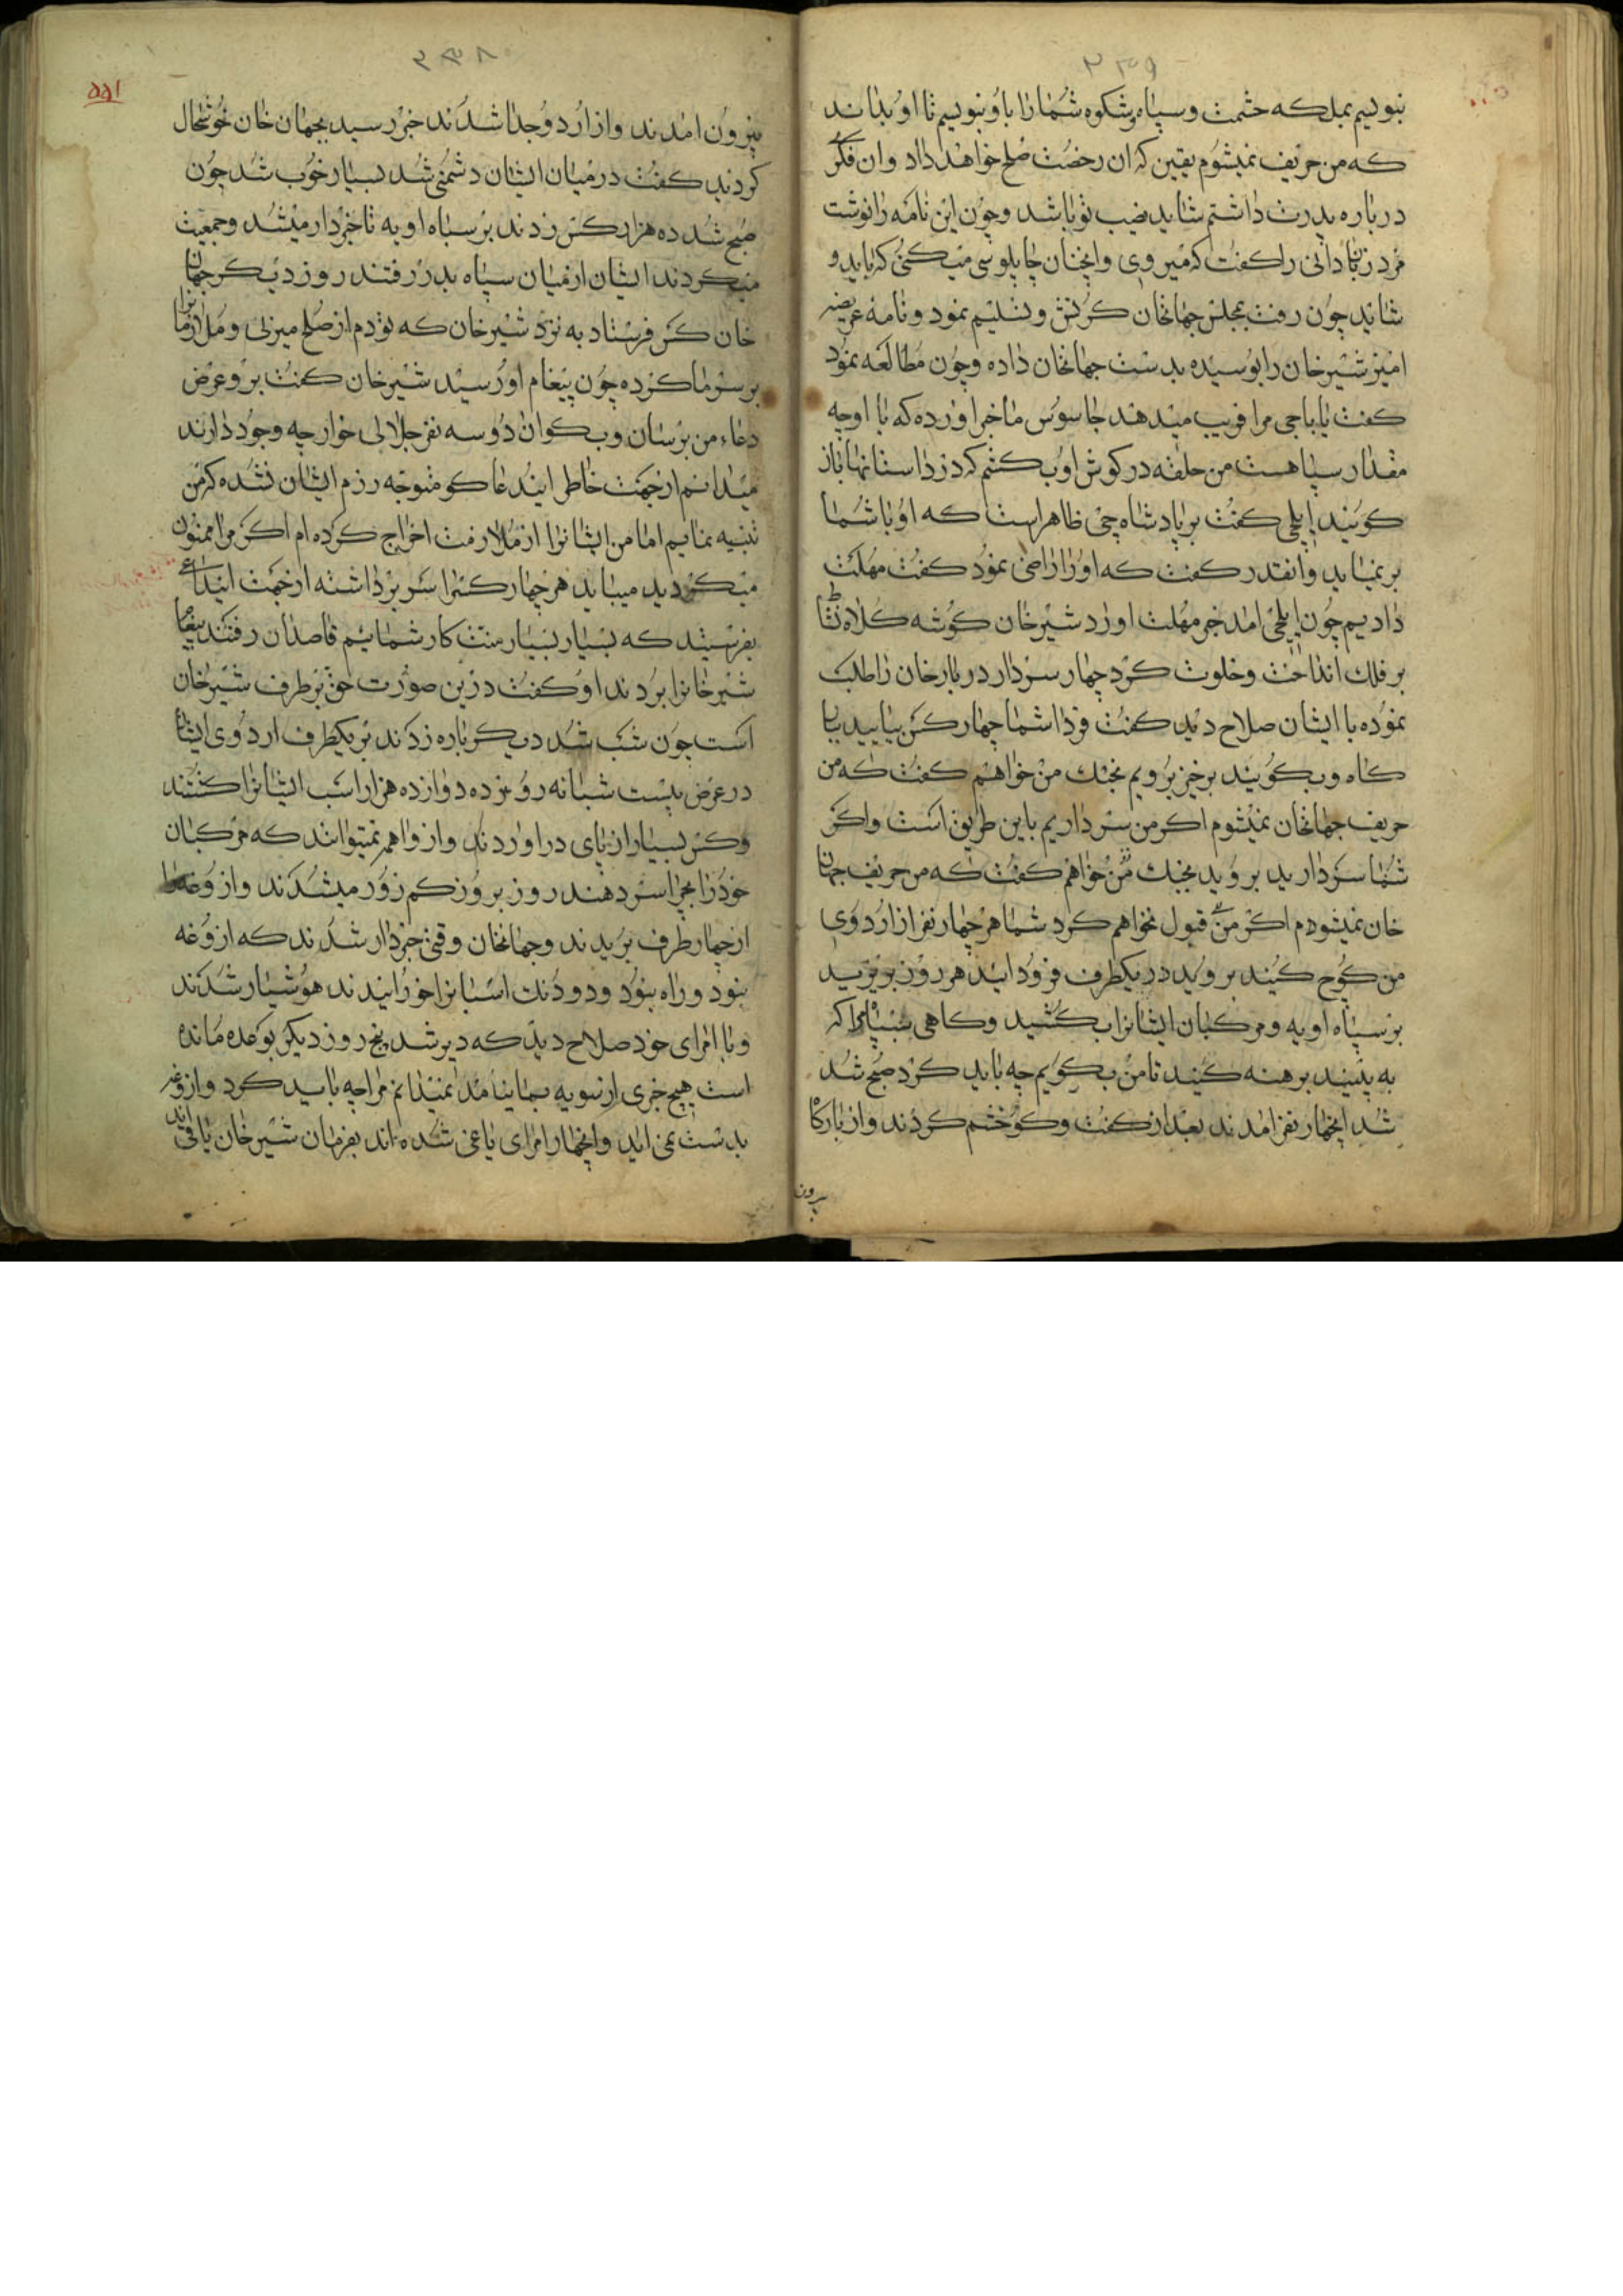 ۳۳۹
بنویسم بملکه حشمت و سپاه و شکوه شمارا باو بنویسم تا او بداند
که من حریف نمیشوم یقین که ان رخصت صلح خواهد داد وان فکر
درباره پدرت داشتم شاید نصیب تو باشد و چون این نامه را نوشت
مرد زباندانی را کفت که میروی وانچنان چاپلوسی میکنی که باید و
شاید چون رفت بمجلس جهانخان کرنش و تسلیم نمود و نامه عریضه
امیز شیرخان را بوسیده بدست جهانخان داده و چون مطالعه نمود
کفت یا باجی مرا فریب میدهند جاسوس ما خبر اورده که با او چه
مقدار سپاهست من حلقه در کوش او بکشم که در داستانها باز
کویند ایلچی کفت بر پادشاه چین ظاهر است که او با شما
بر نمیاید وانقدر کفت که او را راضی نمود کفت مهلت
دادیم چون ایلچی امد خبر مهلت اورد شیرخان کوشه کلاه نشاط
بر فلک انداخت و خلوت کرد چهار سردار دربار خان را طلب
نموده با ایشان صلاح دید کفت فردا شما چهار کس بیایید ببار
کاه و بکویید برخیز برویم بجنک من خواهم کفت که من
حریف جهانخان نمیشوم اکر من سرداریم باین طریق است واکر
شما سردارید بروید بجنک من خواهم کفت که من حریف جهان
خان نمیشودم اکر من قبول نخواهم کرد شما هر چهار نفر از اردوی
من کوچ کنید بروید در یکطرف فرود ایید هر روز بریزید
بر سپاه او به و مرکبان ایشانرا بکشید و کاهی سپاه مرا که
به بینید برهنه کنید تا من بکویم چه باید کرد صبح شد
شد انچهار نفر امدند بعد از کفت و کو خشم کردند و از بارکاه
بیرون
۳۳۸
۵۵۱
بیرون امدند و از اردو جدا شدند خبر رسید بجهان خان خوشحال
کردید کفت در میان ایشان دشمنی شد بسیار خوب شد چون
صبح شد ده هزار کس زدند بر سپاه او به تا خبردار میشد و جمعیت
میکردند ایشان از میان سپاه بدر رفتند روز دیکر جهان
خان کس فرستاد به نزد شیرخان که تو دم از صلح میزنی و ملازمانرا
بر سر ما کرده چون پیغام او رسید شیرخان کفت برو عرض
دعاء من برسان و بکو ان دو سه نفر جلالی خوار چه وجود دارند
میدانم از جهت خاطر ایندعا کو متوجه رزم ایشان نشده که من
تنبیه نمایم اما من ایشانرا از ملازمت اخراج کرده ام اکر مرا ممنون
میکردید میباید هر چهار کسرا سر برداشته از جهت ایندعا
بفرستید که بسیار بسیار منت کار شماییم قاصدان رفتند پیغام
شیرخانرا بردند او کفت درین صورت حق بر طرف شیرخان
است چون شب شد دیکر باره زدند بر یکطرف اردوی ایشان
در عرض بیست شبانه روز ده دوازده هزار اسب ایشانرا کشتند
وکس بسیار از پای در اوردند و از واهمه نمیتوانند که مرکبان
خودرا بچرا سر دهند روز بروز کم زور میشدند و ازوغه را
از چهار طرف بریدند و جهانخان وقتی خبردار شدند که ازوغه
نبود و راه نبود و دو دنک اسبانرا خورانیدند هوشیار شدند
و با امرای خود صلاح دید که دیر شد پنج روز دیکر بوعده مانده
است هیچ خبری ازسوبه بما نیامد نمیدانم مرا چه باید کرد و ازوغه
بدست نمی اید وانچهار امرای یاغی شده اند بفرمان شیرخان یاغی اند